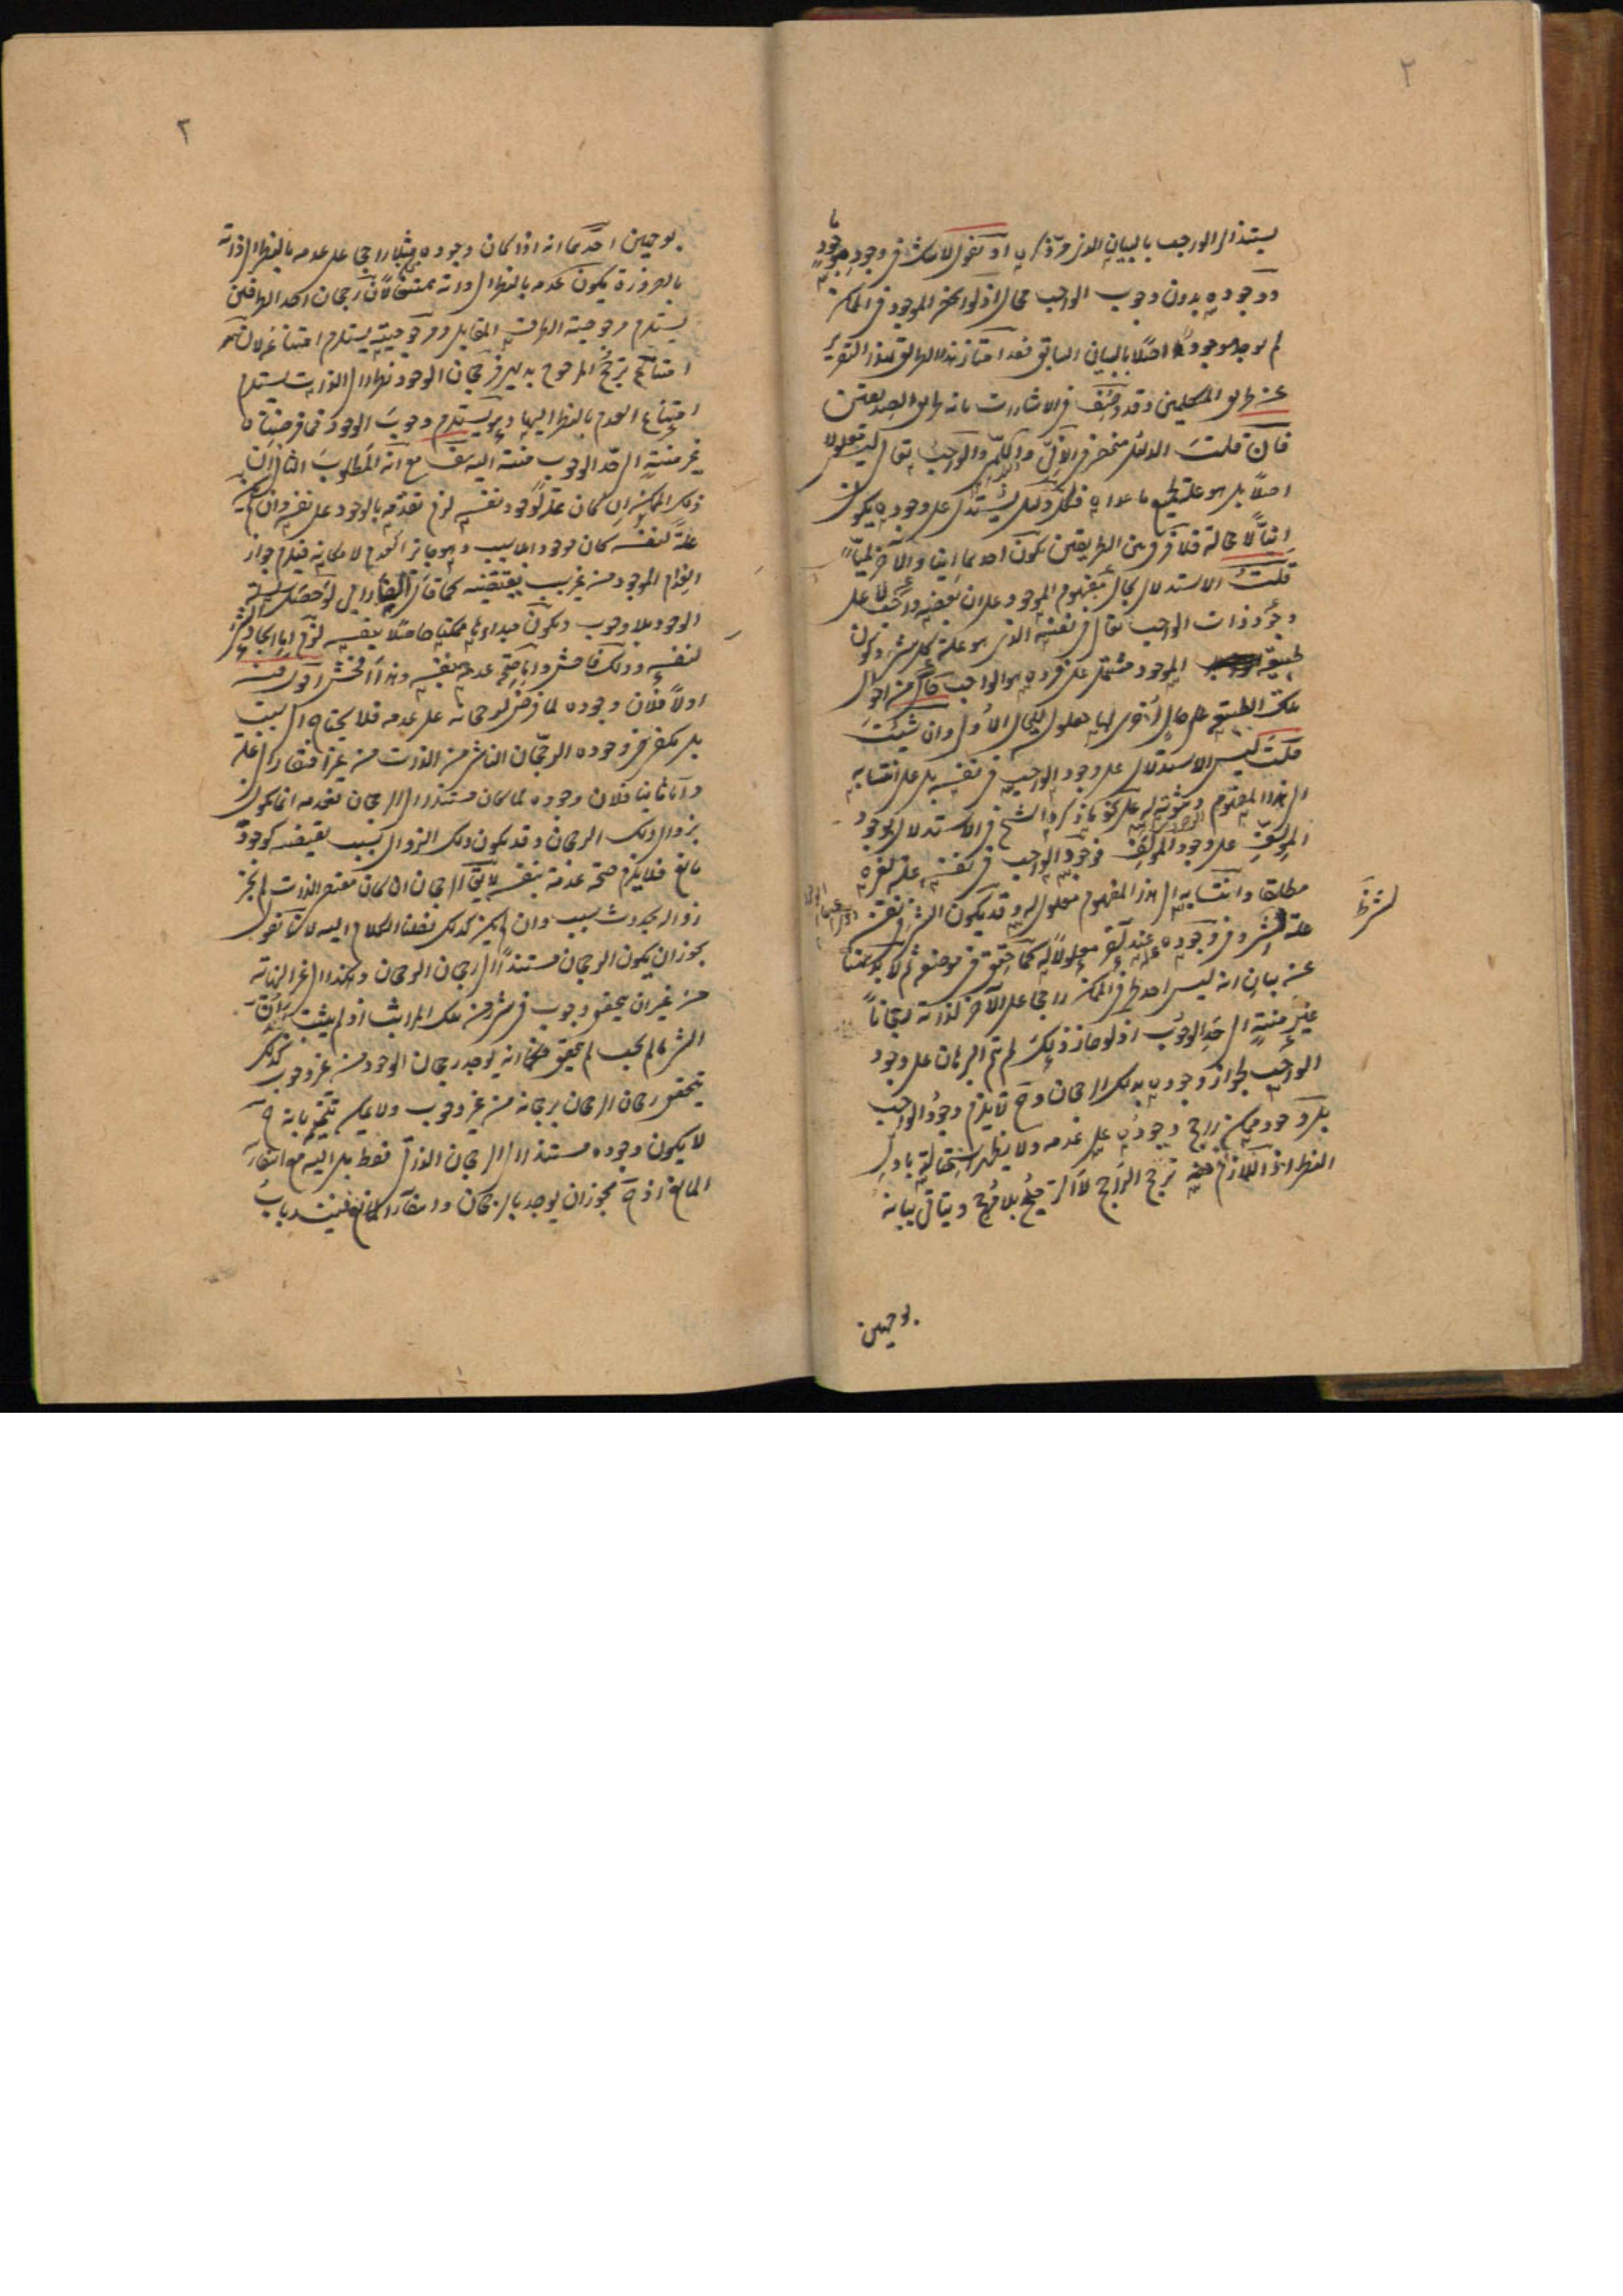 ٢
يستند الى الواجب بالبيان الذى مر ذكره او نقول لا شك فى وجود موجود ما
ووجوده بدون وجوب الواجب محال اذ لو انحصر الموجود فى الممكن
لم يوجد موجود اصلا بالبيان السابق فقد امتاز هذا الطريق بهذا التقرير
عن طريق المتكلمين وقد وصف فى الاشارات بانه طريق الصديقين
فان قلت الدليل منحصر فى الانى واللمى والواجب تعالى ليس معلولا
اصلا بل هو علة لجميع ما عداه فكل دليل يستدل على وجوده يكون
انيا لا محالة فلا فرق بين الطريقين بكون احدهما انيا والآخر لميا
قلت الاستدلال بحال مفهوم الموجود على ان بعضه واجب لا على
وجود ذات الواجب تعالى فى نفسه الذى هو علة كل شىء وكون
طبيعة الموجود مشتمل على فرد هو الواجب حال من احوال
تلك الطبيعة على حال اخرى لها معلول للحال الاول وان شئت
قلت ليس الاستدلال على وجود الواجب فى نفسه بل على انتسابه
الى هذا المفهوم وثبوته له على نحو ما ذكره الشيخ فى الاستدلال بوجود
المؤلف على وجود المؤلف فوجود الواجب فى نفسه علة لغيره
مطلقا وانتسابه الى هذا المفهوم معلول له وقد يكون الشىء فى نفسه
علة لشىء وفى وجوده عند آخر معلولا له كما حقق فى موضعه ثم لا بد ههنا
من بيان انه ليس احد طرفى الممكن راجحا على الآخر لذاته رجحانا
غير منته الى حد الوجوب اذ لو جاز ذلك لم يتم البرهان على وجود
الواجب لجواز وجوده بذلك الرجحان وح لا يلزم وجود الواجب
بل وجود ممكن راجح وجوده على عدمه ولا يظهر استحالته بادى
النظر اذ اللازم منه ترجح الراجح لا الترجيح بلا مرجح ويتاتى بيانه
بوجهين
٢
بوجهين احدهما انه اذا كان وجوده مثلا راجحا على عدمه بالنظر الى ذاته
بالضرورة يكون عدمه بالنظر الى ذاته ممتنعا لان رجحان احد الطرفين
يستلزم مرجوحية الطرف المقابل ومرجوحيته يستلزم امتناعه لاستحالة
امتناع ترجح المرجوح بديهى فرجحان الوجود نظرا الى الذات يستلزم
امتناع العدم بالنظر اليها وهو يستلزم وجوب الوجود فما فرضناه
غير منته الى حد الوجوب منته اليه هف مع انه المطلوب الثانى ان
ذلك الممكن ان كان علة لوجود نفسه لزم تقدمه بالوجود على نفسه وان لم يكن
علة لنفسه كان موجودا بلا سبب وهو جائز العدم لامكانه فيلزم جواز
انعدام الموجود من غير سبب يقتضيه كما قال الفارابى لو حصل سلسلة
الوجود بلا وجوب ويكون مبداؤها ممكنا حاصلا بنفسه لزم اما ايجاد الشىء
لنفسه وذلك فاحش واما صحة عدمه بنفسه وهذا افحش اقول فيه
اولا فلان وجوده لما فرض رجحانه على عدمه فلا يحتاج الى سبب
بل يكفى فى وجوده الرجحان الناشى من الذات من غير افتقار الى علة
واما ثانيا فلان وجوده لما كان مستندا الى الرجحان فعدمه انما يكون
بزوال ذلك الرجحان وقد يكون ذلك الزوال بسبب يقتضيه كوجود
مانع فلا يلزم صحة عدمه بنفسه لا يق الرجحان ان كان مقتضى الذات لم يجز
زواله بحدوث سبب وان لم يكن كذلك نقلنا الكلام اليه لانا نقول
يجوز ان يكون الرجحان مستندا الى رجحان الرجحان وهكذا الى غير النهاية
من غير ان يتحقق وجوب فى شىء من تلك المراتب اذ لم يثبت بعد ان
الشىء ما لم يجب لم يتحقق فكما انه يوجد رجحان الوجود من غير وجوب كذلك
يتحقق رجحان الرجحان برجحانه من غير وجوب ولا يمكن تتميمه بانه ح
لا يكون وجوده مستندا الى الرجحان الذاتى فقط بل اليه مع انتفاء
المانع اذ ح يجوز ان يوجد بالرجحان وانتفاء المانع فينسد باب